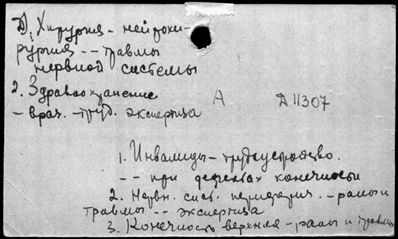 Д) Хирургия - нейрохи-
рургия -- травмы
нервной системы
2. Здравоохранение
- врач. - труд. экспертиза
А Д 11307
1. Инвалиды - трудоустройство.
-- при дефектах конечности
2. Нервн. сист. периферич. - раны и
травмы -- экспертиза
3. Конечность верхняя - раны и травмы